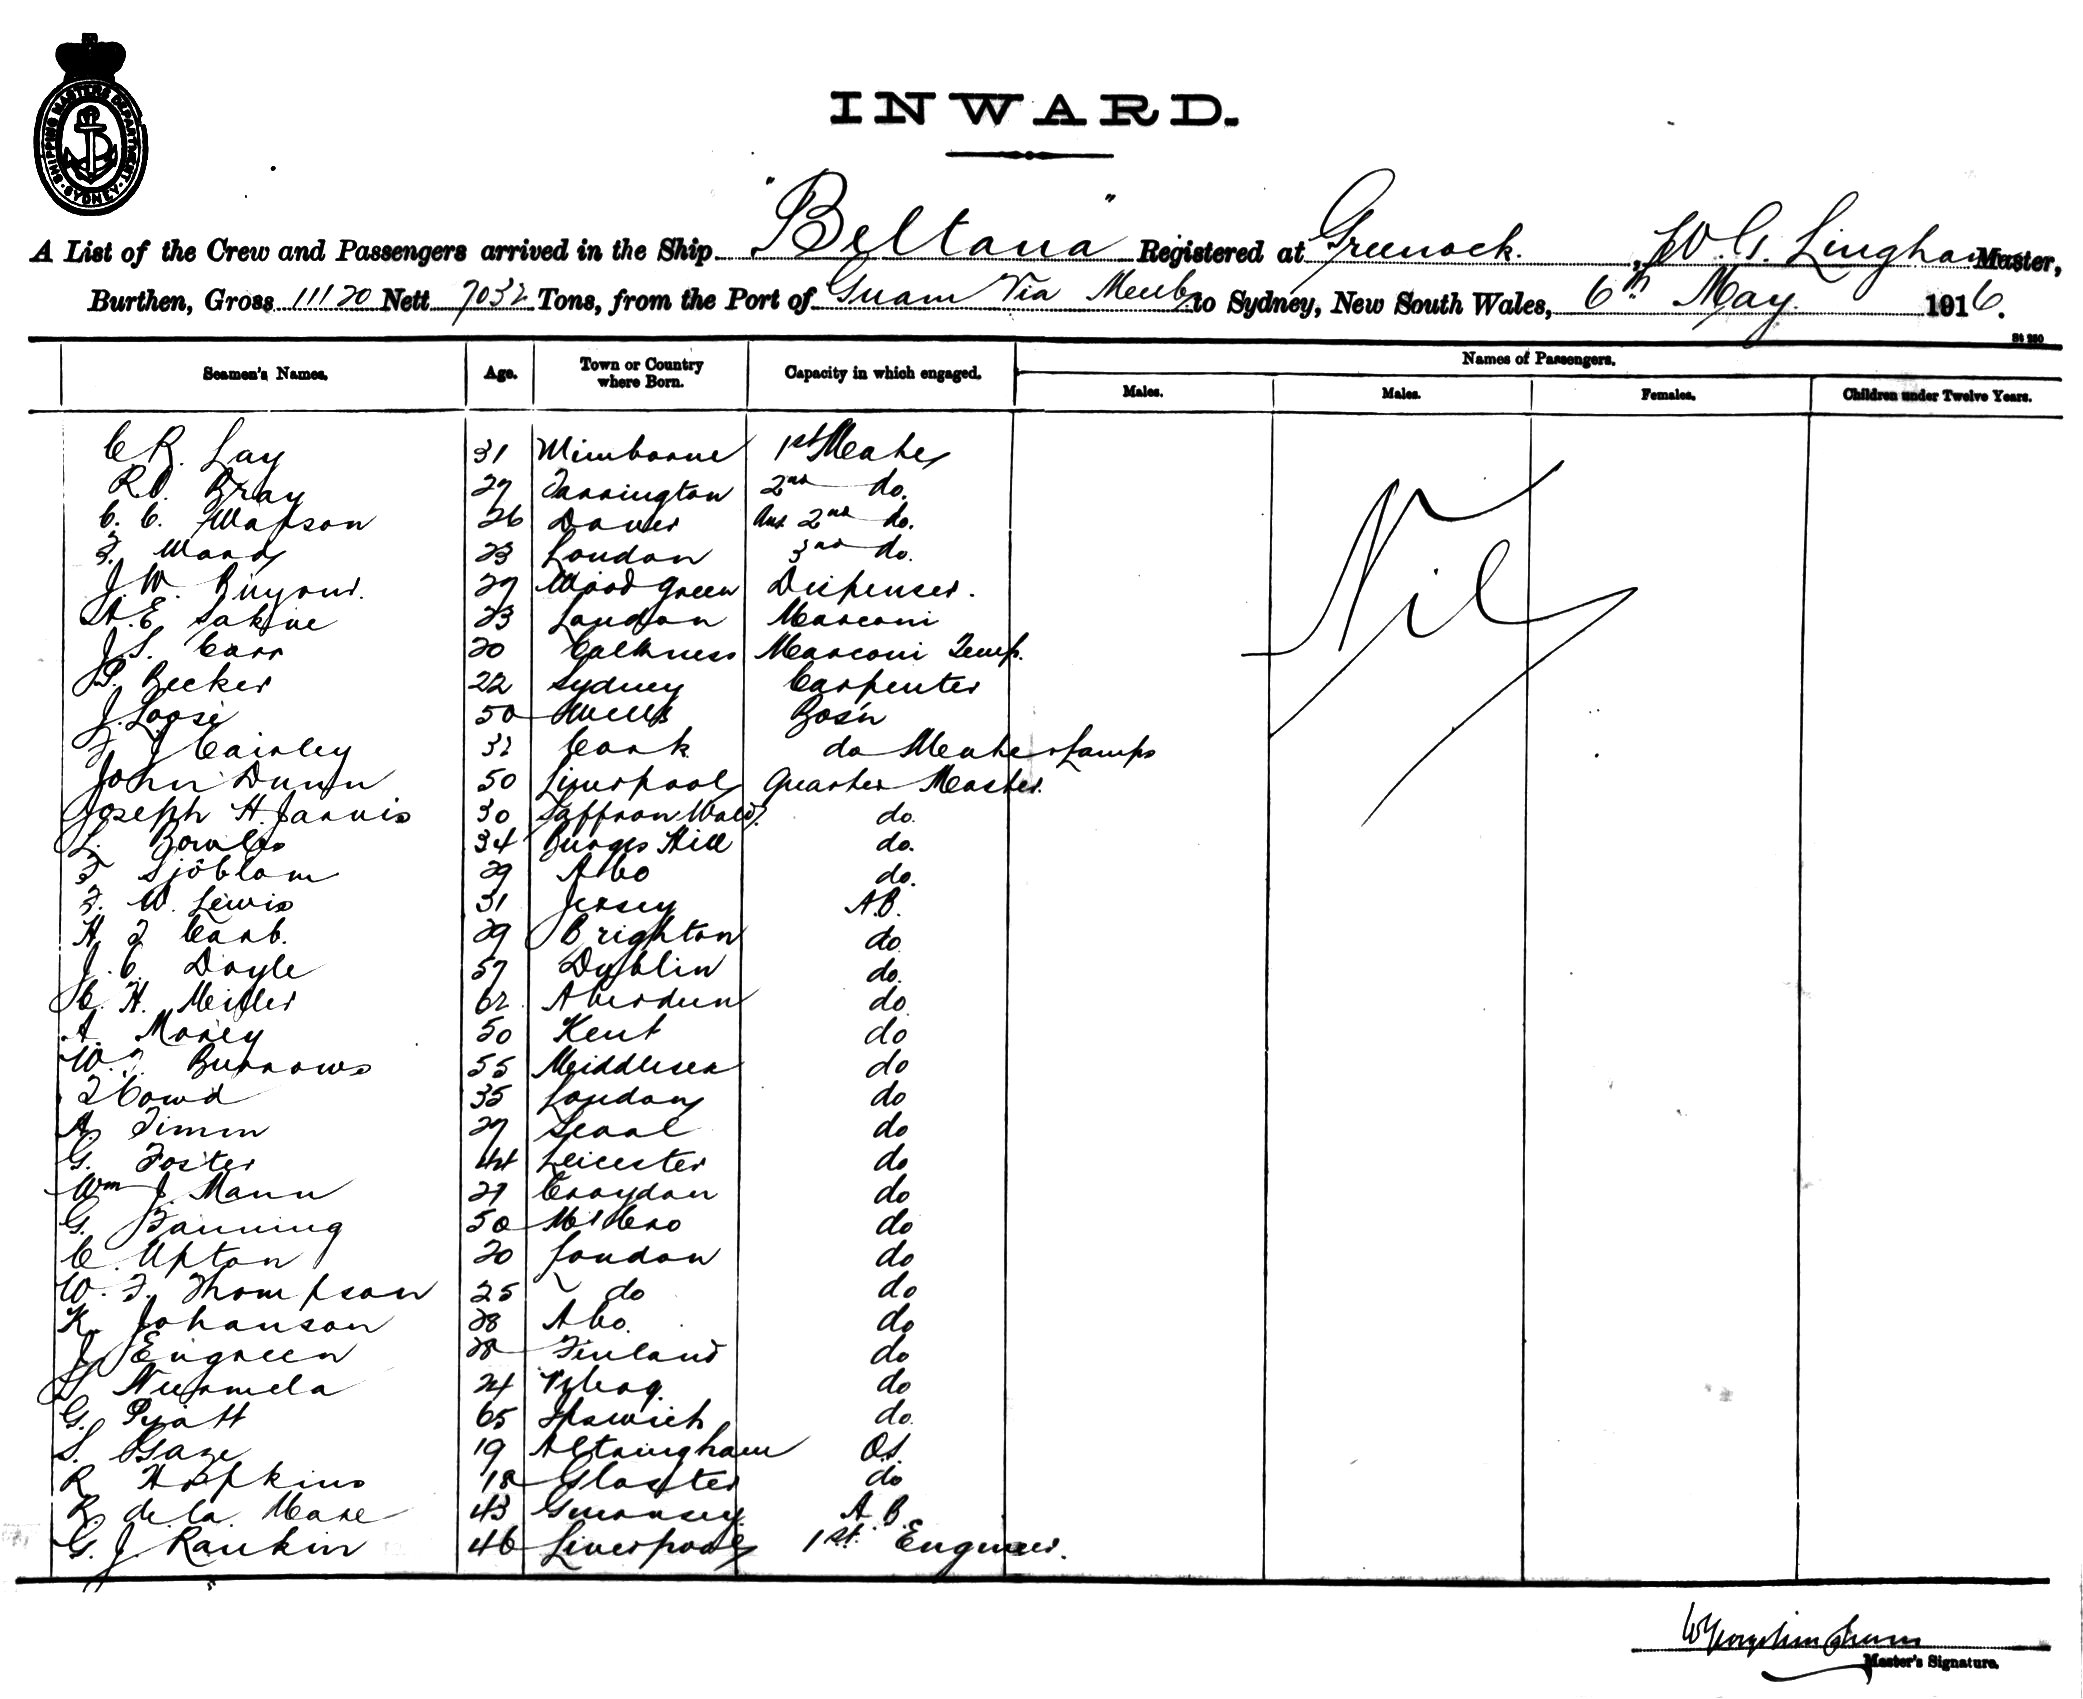 SHIPPING MASTERS DEPARTMENT
SYDNEY
INWARD.
A List of the Crew and Passengers arrived in the Ship "Beltana" Registered at Greenock. , W. G. Lingham Master,
Burthen, Gross 11120 Nett 7032 Tons, from the Port of Guam Via Melb to Sydney, New South Wales, 6th May 1916.
St 250
Seamen's Names. Age. Town or Country where Born. Capacity in which engaged. Names of Passengers.
Males. Males. Females. Children under Twelve Years.
Nil
C R. Lay 31 Wimborne 1st Mate
R D. Bray 27 Torrington 2nd do.
C. C. Watson 26 Dover Aux 2nd do.
F. Ward 23 London 3rd do.
J. W. Binyon 27 Wood Green Dispenser.
A. E. Sakine 23 London Marconi
J. S. Carr 20 Caithness Marconi Temp.
P. Becker 22 Sydney Carpenter
J. Loose 50 Wells Bos'n
F J Cairley 32 Cork do Mate & Lamps
John Dunn 50 Liverpool Quarter Master.
Joseph H. Jarvis 30 Saffron Wald. do.
L. Bowles 34 Burges Hill do.
F Sjöblom 29 Abo do.
F. W. Lewis 31 Jersey A.B.
H. F Carb. 29 Brighton do
J. C. Doyle 57 Dublin do.
C. H. Miller 62 Aberdeen do
A. Morey 50 Kent do
W. F. Burrows 55 Middlesex do
F Cowd 35 London do
A. Timm 27 Seaal do
G. Foster 44 Leicester do
Wm J. Mann 27 Croydon do
G. Banning 50 M'lbro do
C. Upton 20 London do
W. F. Thompson 25 do do
K. Johanson 28 Abo. do
J. Engreen 28 Finland do
Nurmela 24 Vyborg. do
G. Pyatt 65 Ipswich do.
S. Gaze 19 Altringham O.S.
R Hopkins 18 Gloster do
R. de la Mare 43 Guernsey. A B.
G. J. Rankin 46 Liverpool 1st. Engineer.
Master's Signature.